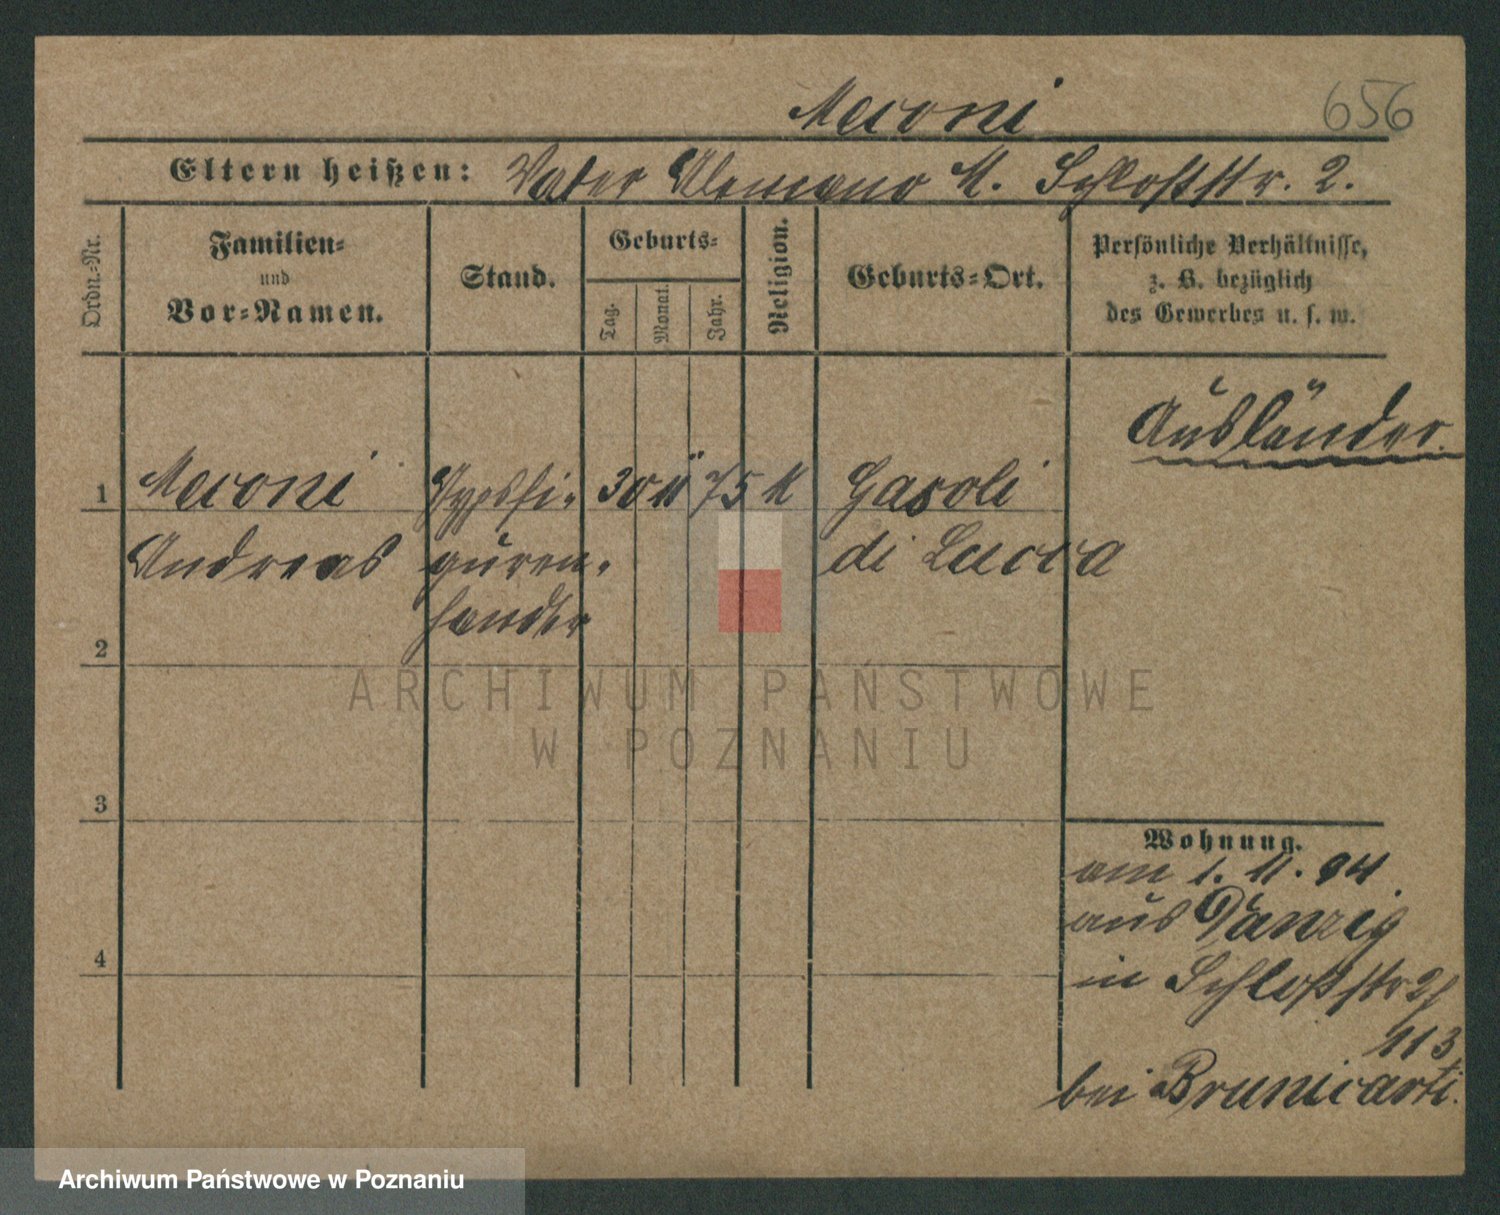 Meconi 656
Eltern heißen: Vater Alemano M. Schloßstr. 2.
Ordn.=Nr.
Familien=
und
Vor=Namen.
Stand.
Geburts=
Tag.
Monat.
Jahr.
Religion.
Geburts=Ort.
Persönliche Verhältnisse,
z. B. bezüglich
des Gewerbes u. s. w.
Ausländer.
1 Meconi Gypsfi- 30 11 75 K Gasoli
Andreas guren- di Lucca
handler
2
3
4
Wohnung.
am 1. 11. 94.
aus Danzig
in Schloßstr 2/
113
bei Brunicarti.
ARCHIWUM PAŃSTWOWE
W POZNANIU
Archiwum Państwowe w Poznaniu